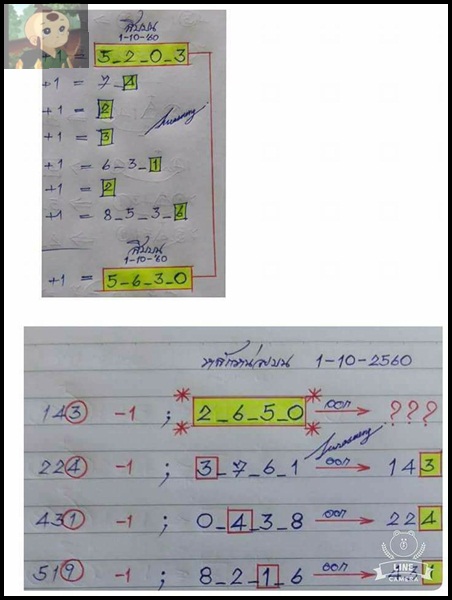 สิบบน
1-10-60
+1 = 5_2_0_3
+1 = 7_4
+1 = 2
+1 = 3
+1 = 6_3_1
+1 = 2
+1 = 8_5_3_6
สิบบน
1-10-60
+1 = 5_6_3_0
หลักหน่วยบน 1-10-2560
143 -1 ; 2_6_5_0 ออก → ???
224 -1 ; 3_7_6_1 ออก → 143
431 -1 ; 0_4_3_8 ออก → 224
519 -1 ; 8_2_1_6 ออก → 431
LINE
CAMERA